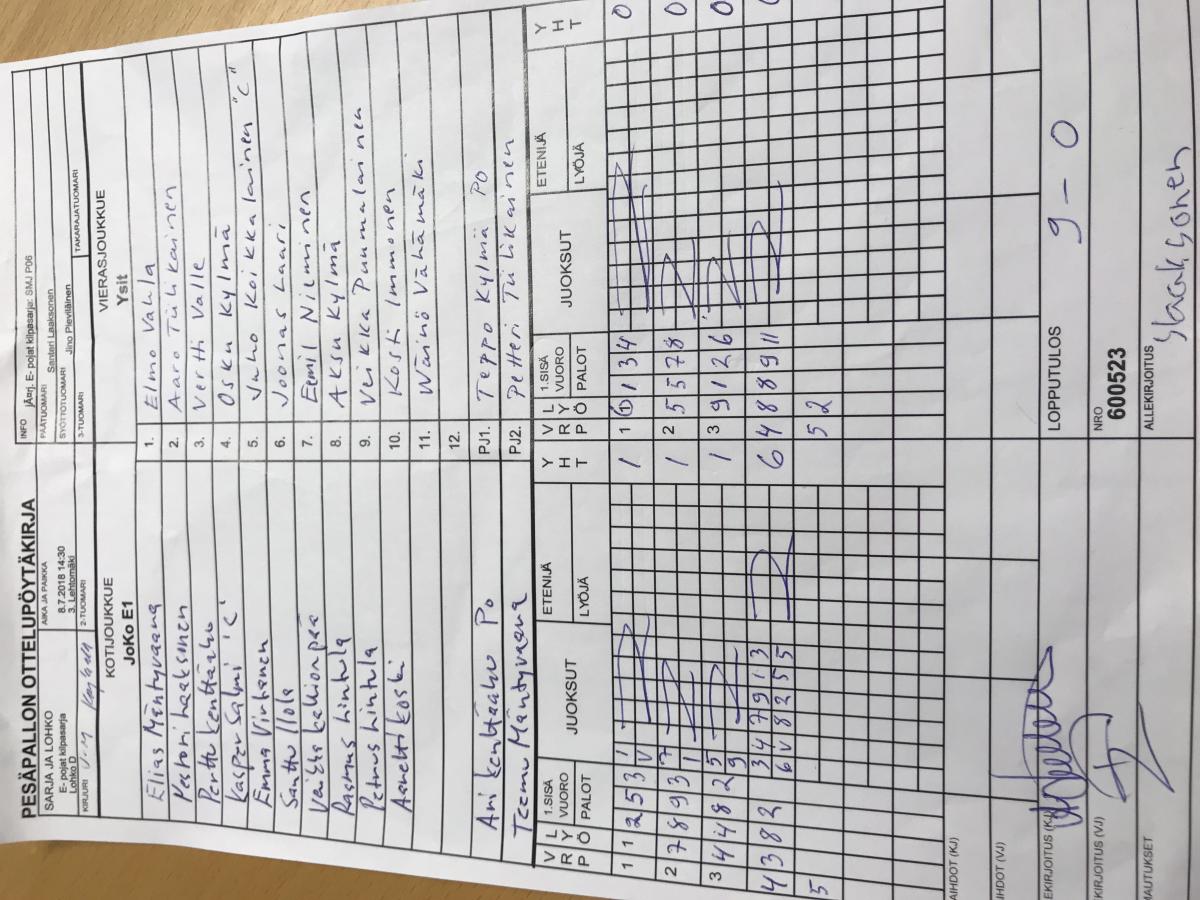 PESÄPALLON OTTELUPÖYTÄKIRJA
INFO jÄ¤rj. E- pojat kilpasarja: SMJ P06
SARJA JA LOHKO
E- pojat kilpasarja
Lohko D
AIKA JA PAIKKA
8.7.2018 14:30
3. Lehtomäki
PÄÄTUOMARI Santeri Laaksonen
SYÖTTÖTUOMARI Jino Pieviläinen
KIRJURI
2-TUOMARI
3-TUOMARI
TAKARAJATUOMARI
KOTIJOUKKUE
JoKo E1
VIERASJOUKKUE
Ysit
Elias Mäntyvaara 1. Elmo Vahla
Pastori Laaksonen 2. Aaro Tiilikainen
Perttu Kenttäaho 3. Vertti Valle
Kasper Salmi "C" 4. Osku Kylmä
Emma Virtanen 5. Juho Koikkalainen "C"
Santtu Ilola 6. Joonas Laari
7. Eemil Nieminen
Rasmus Hintula 8. Aksu Kylmä
Petrus Hintula 9. Veikka Puumalainen
Anetti Koski 10. Kosti Immonen
11. Wäinö Vähämäki
12.
Ari Kenttäaho PO PJ1. Teppo Kylmä PO
Teemu Mäntyvaara PJ2. Petteri Tiilikainen
VRP LYÖ 1.SISÄ VUORO PALOT JUOKSUT ETENIJÄ LYÖJÄ YHT
VRP LYÖ 1.SISÄ VUORO PALOT JUOKSUT ETENIJÄ LYÖJÄ YHT
1 1 2 5 3 1 V 1 1 1 1 3 4 0
2 7 8 9 3 7 1 1 2 5 5 7 8 0
3 4 4 8 2 5 9 1 3 9 1 2 6 0
4 3 8 2 3 4 7 9 1 3 6 6 4 8 8 9 11
6 V 8 2 5 5
5 5 2
AIHDOT (KJ)
IHDOT (VJ)
EKIRJOITUS (KJ) LOPPUTULOS 9 - 0
KIRJOITUS (VJ) NRO
600523
AUTUKSET ALLEKIRJOITUS
SLaaksonen